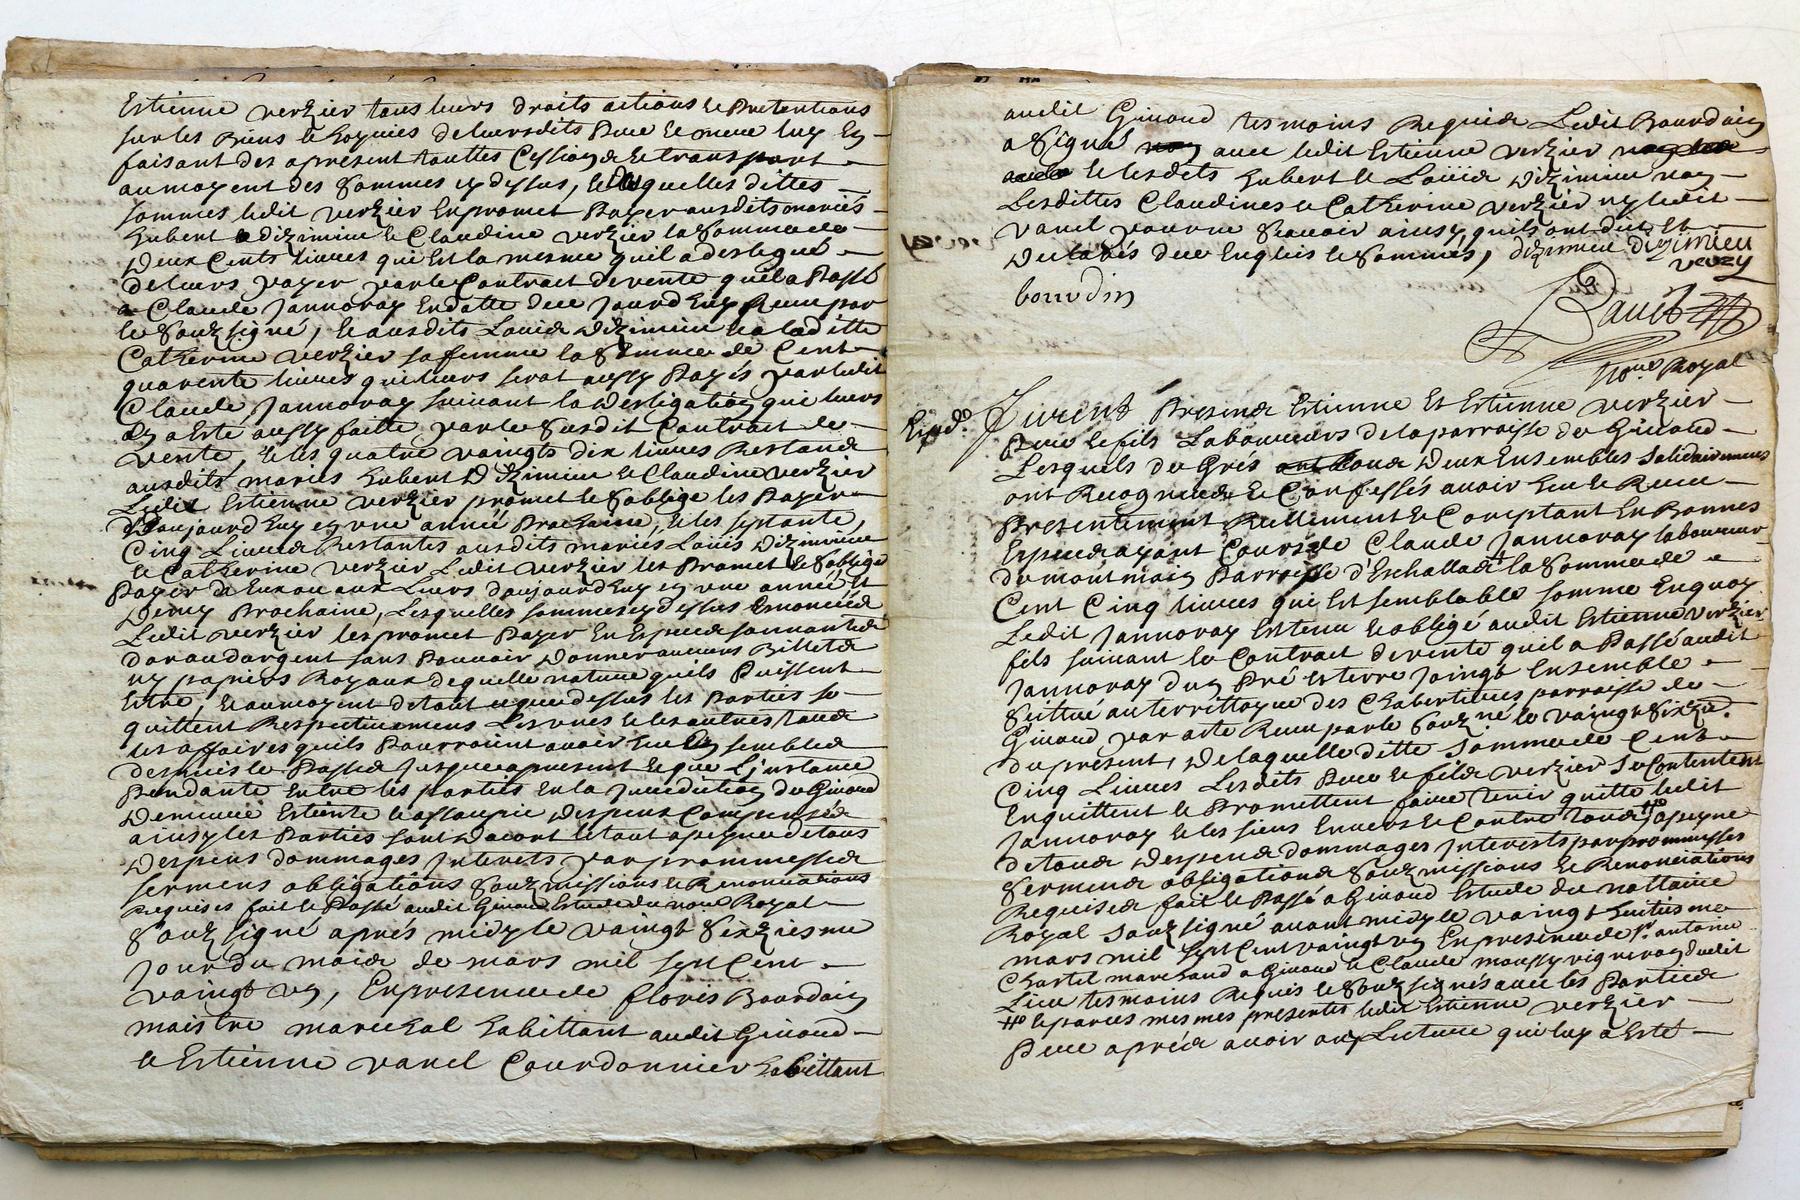 Estienne verzier tous leurs droits actions et Pretentions
sur les Biens et hoyries de leursdits Pere et mere luy en
faisant des apresent touttes Cession et transport
aumoyent des sommes cy dessus, lesquelles dittes
sommes ledit verzier en promet Payer ausdits mariés
hubert dizimieu et Claudine verzier la somme de
Deux Cents livres qui est la mesme quil a deslegué
de leurs payer par le Contract de vente quil a Passé
a Claude Jannoray en datte de ce jourdhuy Receu par
le souzsigné, et ausdits Louis dizimieu et a laditte
Catherine verzier sa femme la somme de Cent
quarente livres qui leurs serat aussy Payés par ledit
Claude Jannoray suivant la desligation qui leurs
en a esté aussy faitte par le susdit Contract de
vente, et les quatre vaingts dix livres Restants
ausdits mariés hubert Dizimieu et Claudine verzier
Ledit Estienne verzier promet et soblige les Payer
Daujourdhuy en une année Prochaine, et les septante
Cinq Livres Restantes ausdits mariés Louis dizimieu
et Catherine verzier Ledit verzier les Promet et soblige
Payer daujourdhuy en une année et
Demy Prochaine, Lesquelles sommes cy dessus enoncées
Ledit verzier les promet Payer En Especes sonnantes
dor ou dargent sans Pouvoir donner aucuns Billets
ny papiers Royaux de quelle nature quils Puissent
Estre, et aumoyent de tout ce que dessus les Parties se
quittent Respectivement les unes et les autres tous
les affaires quils Pourroient avoir heu En sembles
despuis le Passé jusques apresent et que L'instance
Pendante Entre les parties En la Jurediction de Givord
Demeure Esteinte et assoupie despens Compensés
ainsy les Parties sont dacort le tout a peyne de tous
Despens dommages Interets par prommesses
sermens obligations souzmissions et Renonciations
Requises fait et Passé audit Givord Estude du no.re Royal
souzsigné aprés midy le vaingt sixziesme
jour du mois de mars mil sept Cent
vaingt un, En presence de floris Bourdain
maistre marechal habittant audit Givord
et Estienne vanel Courdonnier habittant
audit Givord tesmoins Requis Ledit Bourdain
a signé avec ledit Estienne verzier
et lesdits hubert et Louis Dizimieu non
Lesdittes Claudine et Catherine verzier ny ledit
vanel pour ne scavoir ainsy quils ont dit et
declarés de ce Enquis et sommés, dizimieu dizimieu
verzy
bourdin
no.re Royal
Furent Presents Estienne Et Estienne verzier
Pere et fils Laboureurs de la parroisse de Givord
Lesquels de Grés tous Deux Ensembles solidairement
ont Recogneus et Confessés avoir heu et Receu
Presentement Reellement et Comptant En Bonnes
Especes ayant Cours de Claude Jannoray laboureur
de montmain Parroisse d'Eschallas la somme de
Cent Cinq livres qui Est semblable somme Enquoy
Ledit Jannoray Est tenu et obligé audit Estienne verzier
fils suivant le Contract de vente quil a Passé audit
Jannoray dun Pré et terre joingt Ensemble
scittué au territtoyre des Chabertieres parroisse de
Givord par acte Receu par le souzné le vaingt sixze.
du present, De laquelle ditte somme de Cent
Cinq Livres Lesdits Pere et fils verzier se Contentent
Enquittent et Promettent faire tenir quitte ledit
Jannoray et les siens Envers et Contre tous a peyne
de tous Despens dommages Interests par prommesses
sermens obligations souzmissions et Renonciations
Requises fait et Passé a Givord Estude du nottaire
Royal souzsigné avant midy le vaingt huitiesme
mars mil sept Cent vaingt un En presence de sr. antoine
Chartet marchand a Givord et Claude moussy vigneron dudit
Lieu tesmoins Requis et souzsignés avec les Parties
et par ces mesmes presentes ledit Estienne verzier
Pere aprés avoir ouy Lecture qui luy a Esté